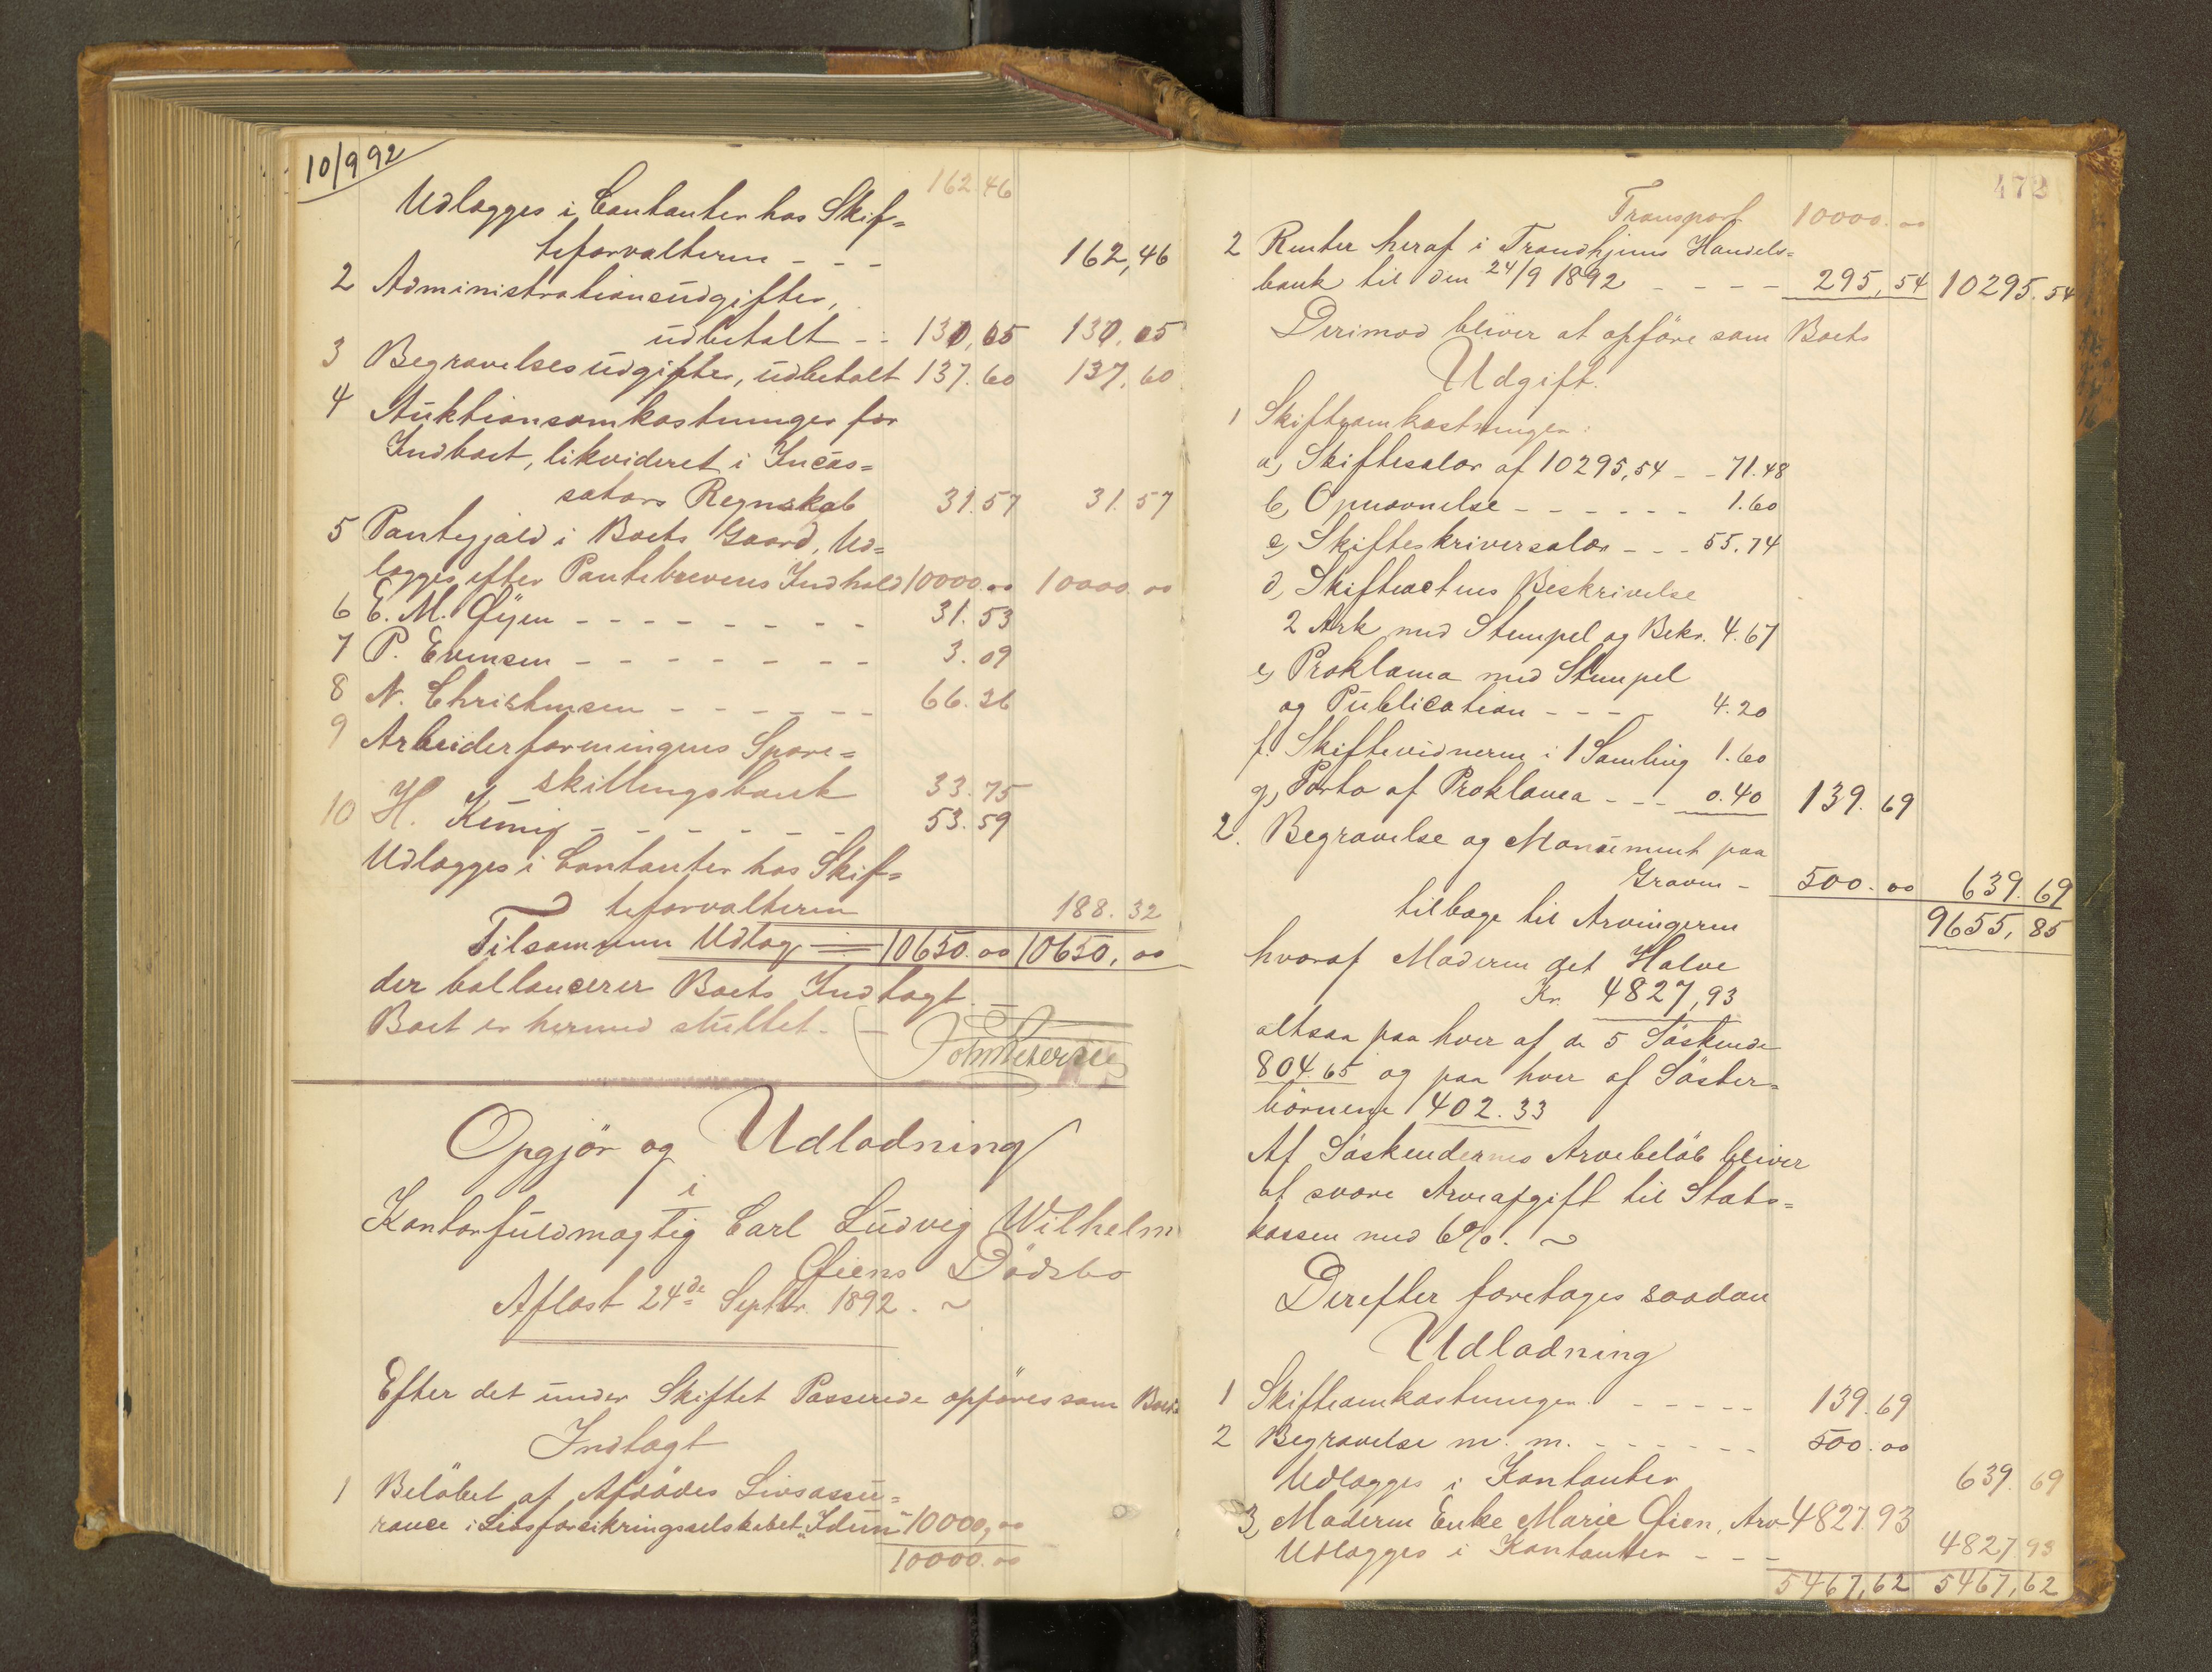 10/9 92
162 46
Udlægges i Contanter hos Skif=
teforvalteren - - - 162,46
2 Administrationsudgifter,
udbetalt - - 130,05 130,05
3 Begravelsesudgifter, udbetalt 137.60 137.60
4 Auktionsomkostninger for
Indboet, likvideret i Incas=
sators Regnskab 31.57 31.57
5 Pantegjæld i Boets Gaard, Ud=
lægges efter Pantebrevenes Indhold 10000.00 10000.00
6 E. M. Øyen - - - - - - - - 31.53
7 P. Evensen - - - - - - - 3.09
8 N. Christensen - - - - - - 66.36
9 Arbeiderforeningens Spare=
skillingsbank 33.75
10 H. - - - - - - 53.59
Udlægges i Contanter hos Skif=
teforvalteren 188.32
Tilsammen Udlæg 10650.00 10650,00
der ballancerer Boets Indtægt. —
Boet er hermed sluttet. —
Opgjør og Udlodning
i
Kontorfuldmægtig Carl Ludvig Wilhelm
Øiens Dødsbo
Aflæst 24de Septbr. 1892. ~
Efter det under Skiftet Passerede opføres som Boets
Indtægt
1 Beløbet af Afdødes Livsassu=
rance i Livsforsikringsselskabet "Idun" 10000,00
10000.00
472
Transport 10000.00
2 Renter heraf i Trondhjems Handels=
bank til den 24/9 1892 - - - - 295,54 10295.54
Derimod bliver at opføre som Boets
Udgift.
1 Skifteomkostninger:
a, Skiftesalær af 10295,54 - - 71.48
b, Opnævnelse - - - - - - 1.60
c, Skifteskriversalær - - - 55.74
d, Skifteactens Beskrivelse
2 Ark med Stempel og Bekr. 4.67
e, Proklama med Stempel
og Publication - - - - 4.20
f. Skiftevidnerne i 1 Samling 1.60
g, Porto af Proklama - - - 0.40 139.69
2. Begravelse og Monument paa
Graven - 500.00 639.69
tilbage til Arvingerne 9655,85
hvoraf Moderen det Halve
Kr. 4827,93
altsaa paa hver af de 5 Søskende
804.65 og paa hver af Søster=
børnene 402.33
Af Søskendernes Arvebeløb bliver
at svare Arveafgift til Stats=
kassen med 6%. ~
Derefter foretages saadan
Udlodning
1 Skifteomkostninger - - - - - 139.69
2 Begravelse m. m. - - - - - - 500.00
Udlægges i Kontanter 639.69
3, Moderen Enke Marie Øien, Arv 4827.93
Udlægges i Kontanter - - - 4827.93
5467,62 5467,62